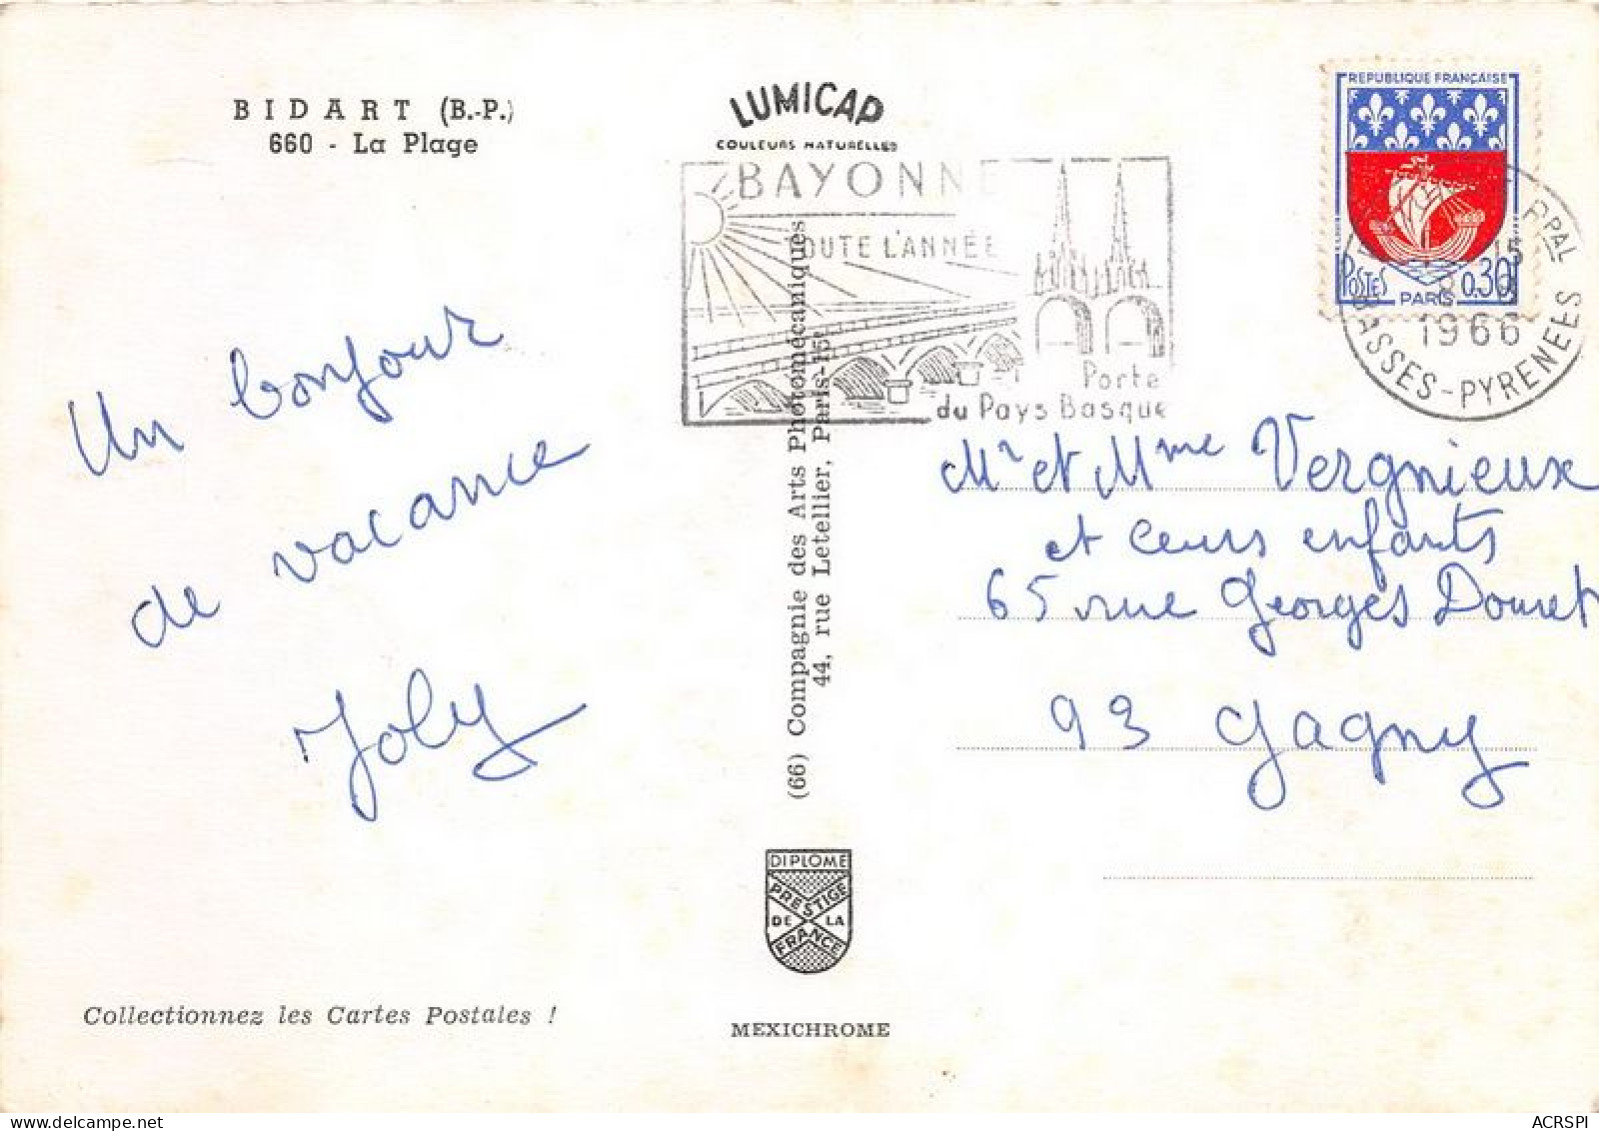 BIDART (B.-P.)
660 - La Plage
LUMICAP
COULEURS NATURELLES
BAYONNE
TOUTE L'ANNÉE
Porte
du Pays Basque
REPUBLIQUE FRANÇAISE
POSTES 0.30
PARIS
PPAL
15
1966
BASSES-PYRENEES
Un bonjour
de vacance
Joly
(66) Compagnie des Arts Photomécaniques
44, rue Letellier, Paris-15e
Mr et Mme Vergnieux
et leurs enfants
65 rue Georges Douret
93 Gagny
DIPLOME
PRESTIGE
DE LA
FRANCE
Collectionnez les Cartes Postales !
MEXICHROME
ACRSPI